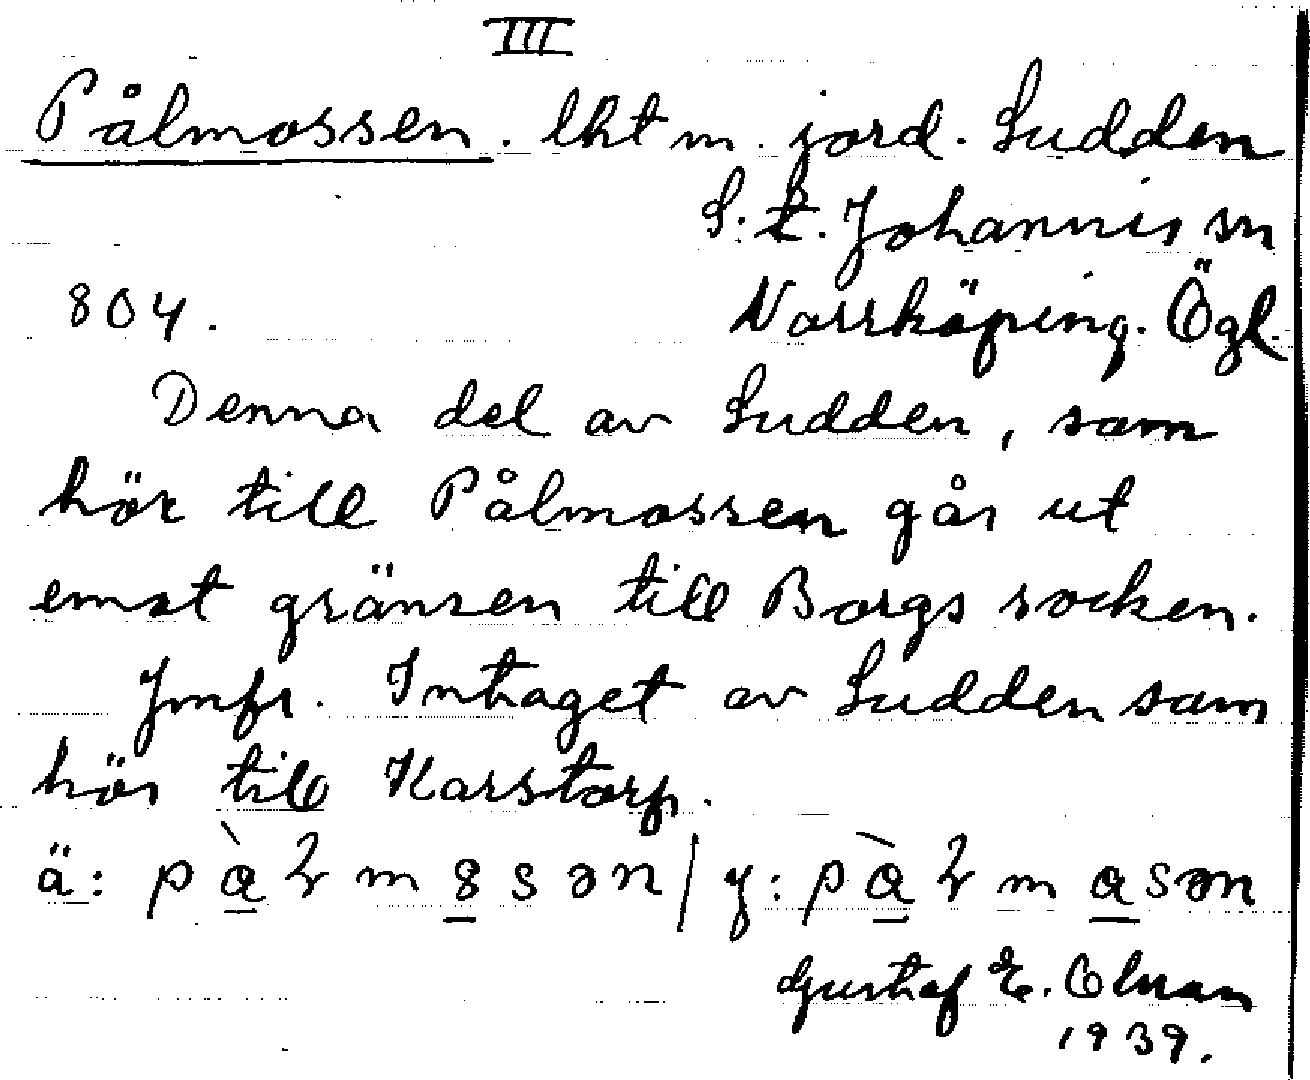 III
Pålmossen. lht m. jord. Sudden
S:t. Johannis sn
804. Norrköping. Ögl.
Denna del av Sudden, som
hör till Pålmossen går ut
emot gränsen till Borgs socken.
Jmfr. Intaget av Sudden som
hör till Karstorp.
ä: 
y: 
Gustaf E. Olman
1939.